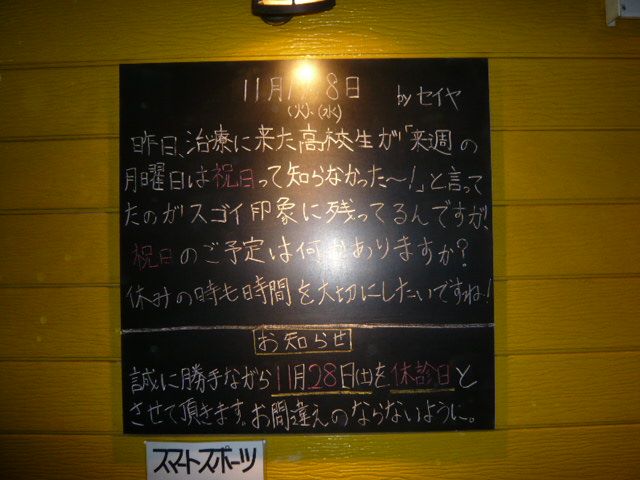 11月17・18日 byセイヤ
(火)・(水)
昨日、治療に来た高校生が「来週の
月曜日は祝日って知らなかった〜!」と言って
たのがスゴイ印象に残ってるんですが、
祝日のご予定は何かありますか?
休みの時も時間を大切にしたいですね!
お知らせ
誠に勝手ながら11月28日(土)を休診日と
させて頂きます。お間違えのならないように。
スマートスポーツ